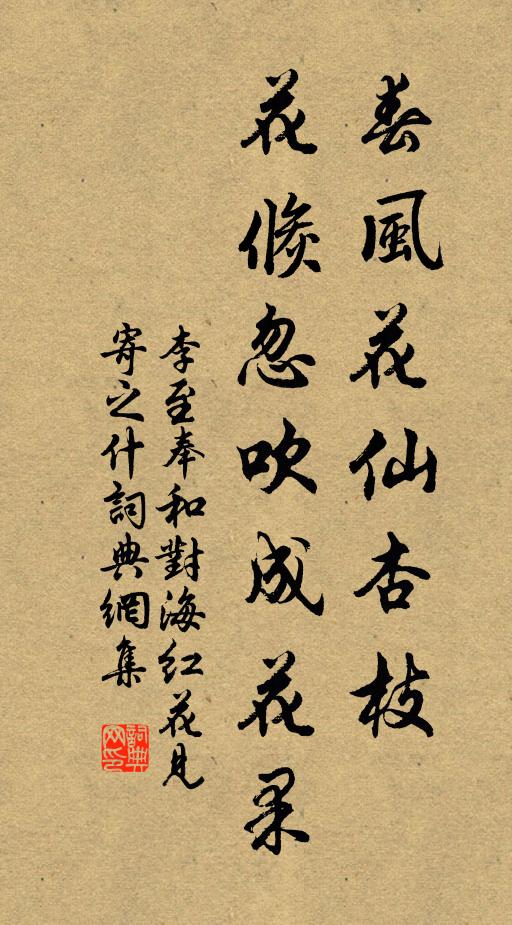 春風花仙杏枝
花倐忽吹成花果
李至奉和對海红花見
寄之什詞典網集
詞典網印